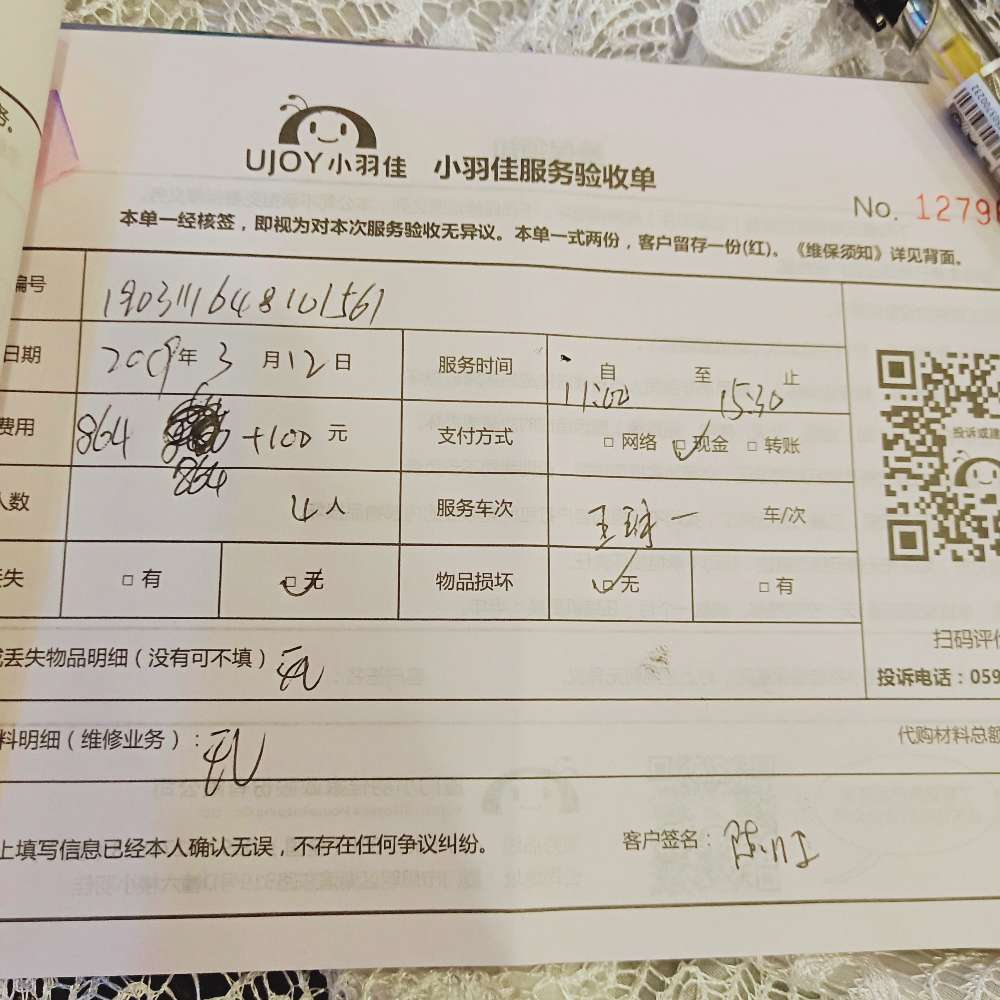 UJOY小羽佳 小羽佳服务验收单
No. 1279
本单一经核签，即视为对本次服务验收无异议。本单一式两份，客户留存一份(红)。《维保须知》详见背面。
编号 1903111648101561
日期 2009年3月12日 服务时间 自11:00 至15:30 止
费用 864 +100 元 支付方式 □ 网络 □ 现金 □ 转账
864
人数 4人 服务车次 车/次
失 □ 有 □ 无 物品损坏 □ 无 □ 有
投诉或建
扫码评价
丢失物品明细（没有可不填） 无
投诉电话：059
料明细（维修业务）：无
代购材料总额
上填写信息已经本人确认无误，不存在任何争议纠纷。 客户签名：